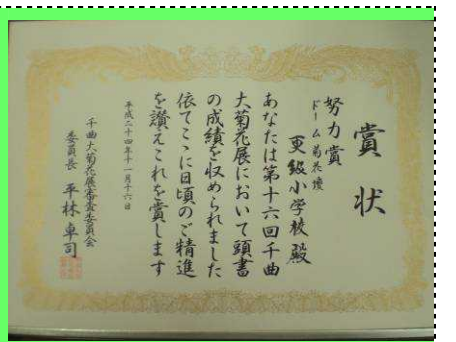 賞状
努力賞
ドーム菊花壇
更級小学校殿
あなたは第十六回千曲
大菊花展において頭書
の成績を収められました
依てこゝに日頃のご精進
を讃えこれを賞します
平成二十四年十一月十六日
千曲大菊花展審査委員会
委員長 平林卓司